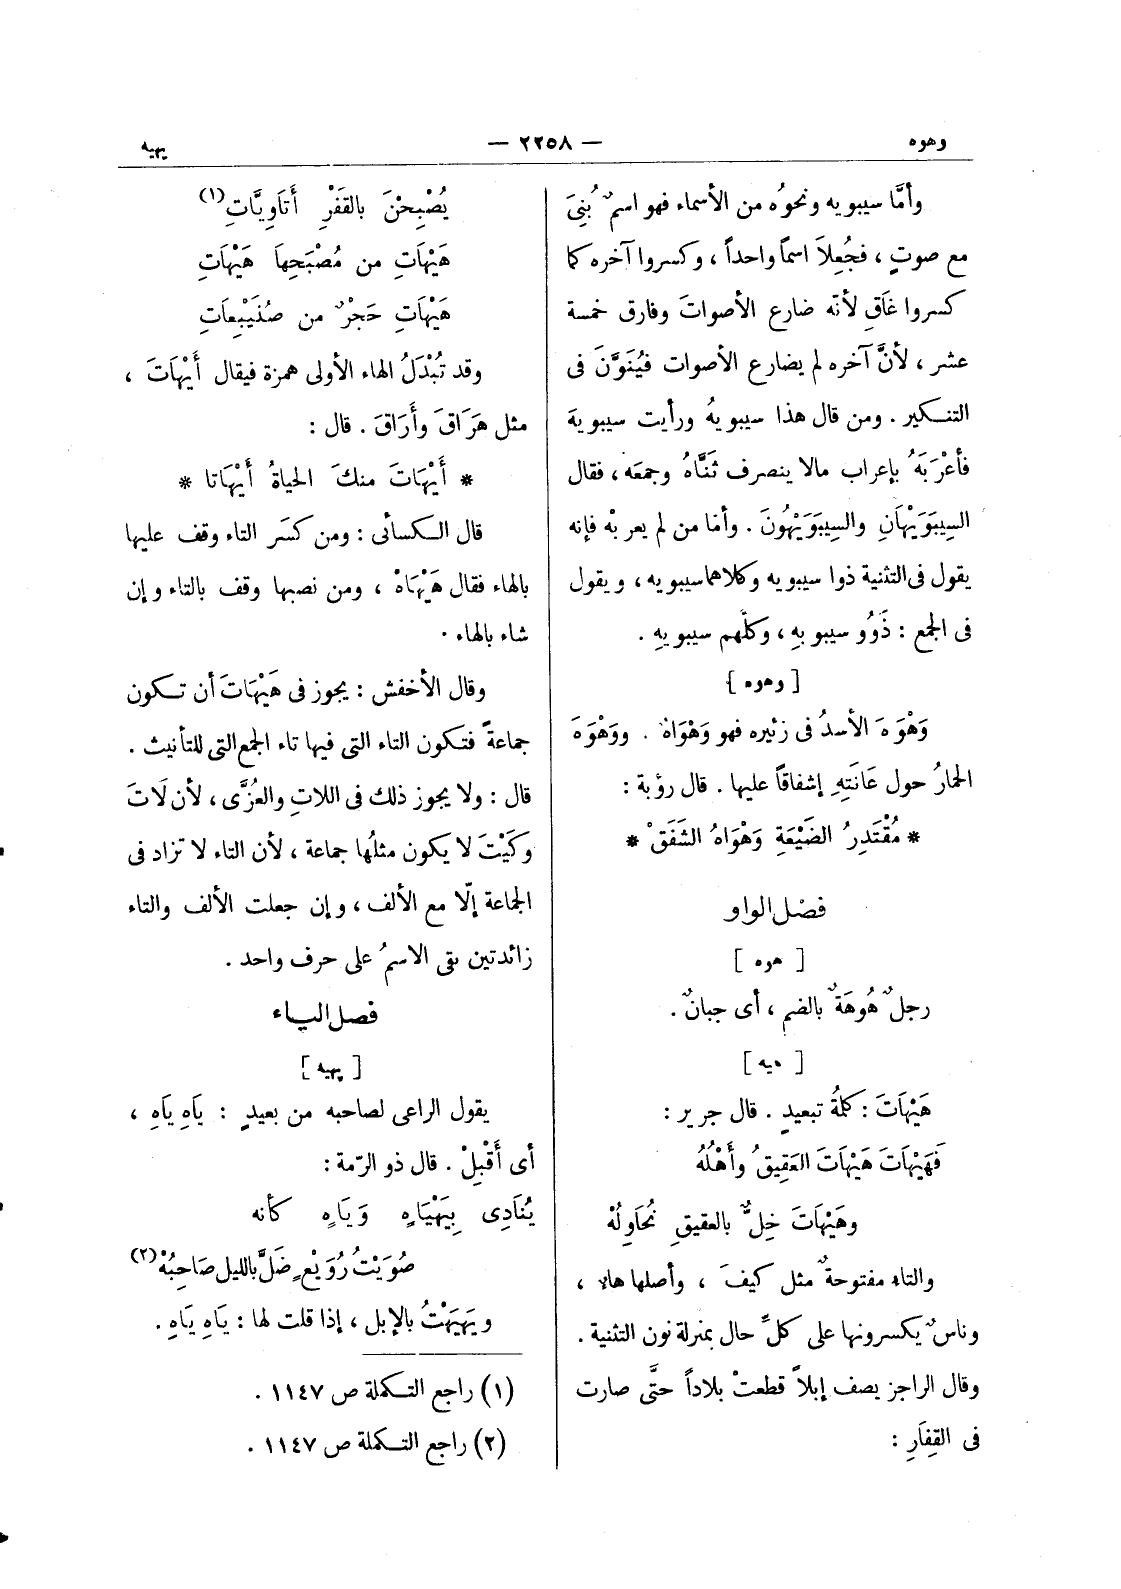 وهوه
— ٢٢٥٨ —
يهيه
وأمَّا سيبويه ونحوُه من الأسماء فهو اسمٌ بُنِىَ
مع صوتٍ ، فجُعِلاَ اسماً واحداً ، وكسروا آخره كما
كسروا غَاقِ لأنّه ضارع الأصواتَ وفارق خمسة
عشر ، لأنَّ آخره لم يضارع الأصوات فيُنَوَّنَ فى
التنكير . ومن قال هذا سيبويهُ ورأيت سيبويهَ
فأعْرَبَهُ بإعراب مالا ينصرف ثَنَّاهُ وجمعَه ، فقال
السِيبَوَيْهَانِ والسِيبَوَيْهُونَ . وأمّا من لم يعربْه فإنه
يقول فى التثنية ذوا سيبويه وكلاهما سيبويه ، ويقول
فى الجمع : ذَوُو سيبويهِ ، وكلّهم سيبويهِ .
[ وهوه ]
وَهْوَهَ الأسدُ فى زئيره فهو وَهْوَاهٌ . ووَهْوَهَ
الحمارُ حول عَانَتِهِ إشفاقاً عليها . قال رؤبة :
* مُقْتَدِرُ الضَيْعَةِ وَهْوَاهُ الشَفَقْ *
فصْل الواو
[ هوه ]
رجلٌ هُوهَةٌ بالضم ، أى جبانٌ .
[ هيه ]
هَيْهَاتَ : كلمةُ تبعيدٍ . قال جرير :
فَهَيْهَاتَ هَيْهَاتَ العَقِيقُ وأَهْلُهُ
وهَيْهَاتَ خِلٌّ بالعقيقِ نُحَاوِلُهْ
والتاء مفتوحةٌ مثل كيفَ ، وأصلها هاء ،
وناسٌ يكسرونها على كلِّ حال بمنزلة نون التثنية .
وقال الراجز يصف إبلاً قطعتْ بلاداً حتَّى صارت
فى القِفَارِ :
يُصْبِحْنَ بالقَفْرِ أَتَاوِيَّاتِ (١)
هَيْهَاتِ من مُصْبَحِهاَ هَيْهَاتِ
هَيْهَاتِ حَجْرٌ من صُنَيْبِعَاتِ
وقد تُبْدَلُ الهاء الأولى همزة فيقال أَيْهَاتَ ،
مثل هَرَاقَ وأَرَاقَ . قال :
* أَيْهَاتَ منكَ الحياةُ أَيْهَاتا *
قال الكسائى : ومن كسَر التاء وقف عليها
بالهاء فقال هَيْهَاهْ ، ومن نصبها وقف بالتاء وإن
شاء بالهاء .
وقال الأخفش : يجوز فى هَيْهَاتَ أن تكون
جماعةً فتكون التاء التى فيها تاء الجمع التى للتأنيث .
قال : ولا يجوز ذلك فى اللاتِ والعزَّى ، لأن لَاتَ
وكَيْتَ لا يكون مثلُها جماعة ، لأن التاء لا تزاد فى
الجماعة إلّا مع الألف ، وإن جعلت الألف والتاء
زائدتين بقى الاسمُ على حرف واحد .
فصل الياء
[ يهيه ]
يقول الراعى لصاحبه من بعيدٍ : يَاهِ يَاهِ ،
أى أَقْبِلْ . قال ذو الرّمة :
يُنَادِى بِيَهْيَاهٍ وَيَاهٍ كأنه
صُوَيْتُ رُوَيْعٍ ضَلَّ بالليل صَاحِبُهْ (٢)
ويَهْيَهْتُ بالإبل ، إذا قلت لها : يَاهِ يَاهِ .
(١) راجع التكملة ص ١١٤٧ .
(٢) راجع التكملة ص ١١٤٧ .